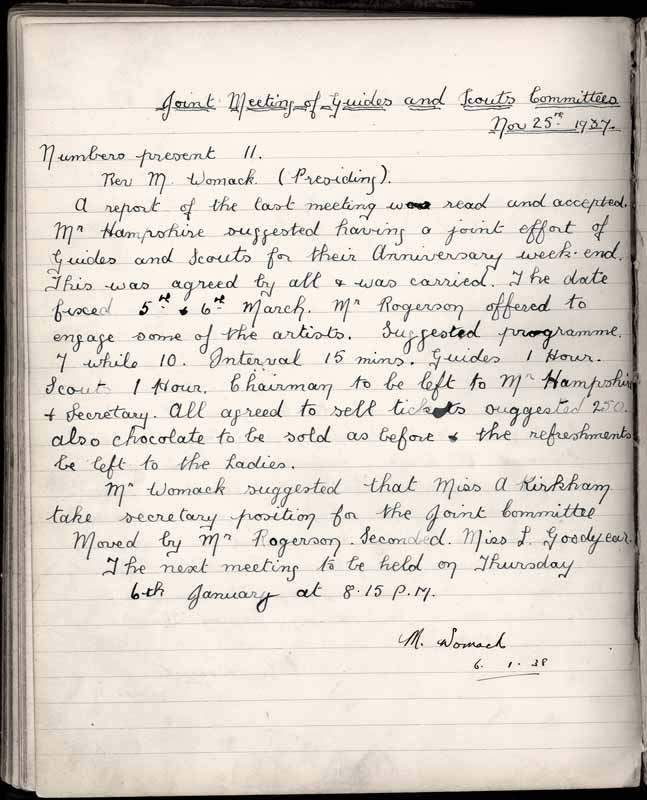 Joint Meeting of Guides and Scouts Committees
Nov 25th 1937.
Numbers present 11.
Rev M. Womack. (Presiding).
A report of the last meeting was read and accepted.
Mr Hampshire suggested having a joint effort of
Guides and Scouts for their Anniversary week-end.
This was agreed by all & was carried. The date
fixed 5th & 6th March. Mr Rogerson offered to
engage some of the artists. Suggested programme.
7 while 10. Interval 15 mins. Guides 1 Hour.
Scouts 1 Hour. Chairman to be left to Mr Hampshire
& Secretary. All agreed to sell tickets suggested 250.
also chocolate to be sold as before & the refreshments
be left to the Ladies.
Mr Womack suggested that Miss A Kirkham
take secretary position for the Joint Committee
Moved by Mr Rogerson. Seconded. Miss L. Goodyear.
The next meeting to be held on Thursday
6th January at 8.15 P.M.
M. Womack
6. 1. 38